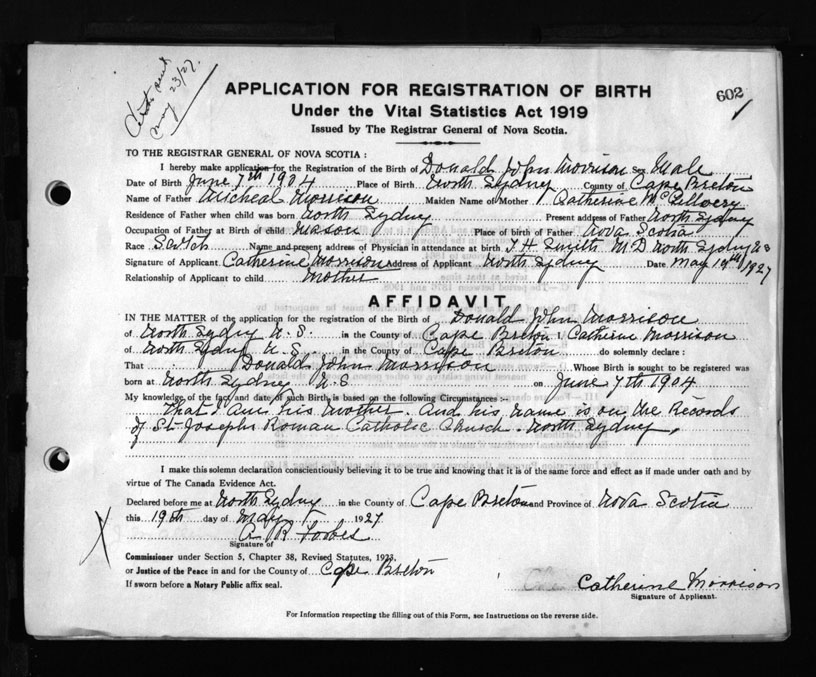 Certif sent
may 23/27.
602
APPLICATION FOR REGISTRATION OF BIRTH
Under the Vital Statistics Act 1919
Issued by The Registrar General of Nova Scotia.
TO THE REGISTRAR GENERAL OF NOVA SCOTIA :
I hereby make application for the Registration of the Birth of Donald John Morrison Sex Male
Date of Birth June 7th 1904 Place of Birth North Sydney County of Cape Breton
Name of Father Micheal Morrison Maiden Name of Mother Catherine McGillvery
Residence of Father when child was born North Sydney Present address of Father North Sydney
Occupation of Father at Birth of child Mason Place of Birth of Father Nova Scotia
Race Scotch Name and present address of Physician in attendance at birth T. H. Smith M.D North Sydney N S
Signature of Applicant Catherine Morrison Address of Applicant North Sydney Date May 19th 1927
Relationship of Applicant to child Mother
AFFIDAVIT
IN THE MATTER of the application for the registration of the Birth of Donald John Morrison
of North Sydney N.S. in the County of Cape Breton I Catherine Morrison
of North Sydney N.S. in the County of Cape Breton do solemnly declare :
That Donald John Morrison Whose Birth is sought to be registered was
born at North Sydney N.S on June 7th 1904
My knowledge of the fact and date of such Birth is based on the following Circumstances :-
That I am his Mother. And his name is on the Records
of St. Josephs Roman Catholic Church. North Sydney,
I make this solemn declaration conscientiously believing it to be true and knowing that it is of the same force and effect as if made under oath and by
virtue of The Canada Evidence Act.
Declared before me at North Sydney in the County of Cape Breton and Province of Nova Scotia
this 19th day of May 1927
A R Forbes
Signature of
X
Commissioner under Section 5, Chapter 38, Revised Statutes, 1923,
or Justice of the Peace in and for the County of Cape Breton
If sworn before a Notary Public affix seal.
Catherine Morrison
Signature of Applicant.
For Information respecting the filling out of this Form, see Instructions on the reverse side.